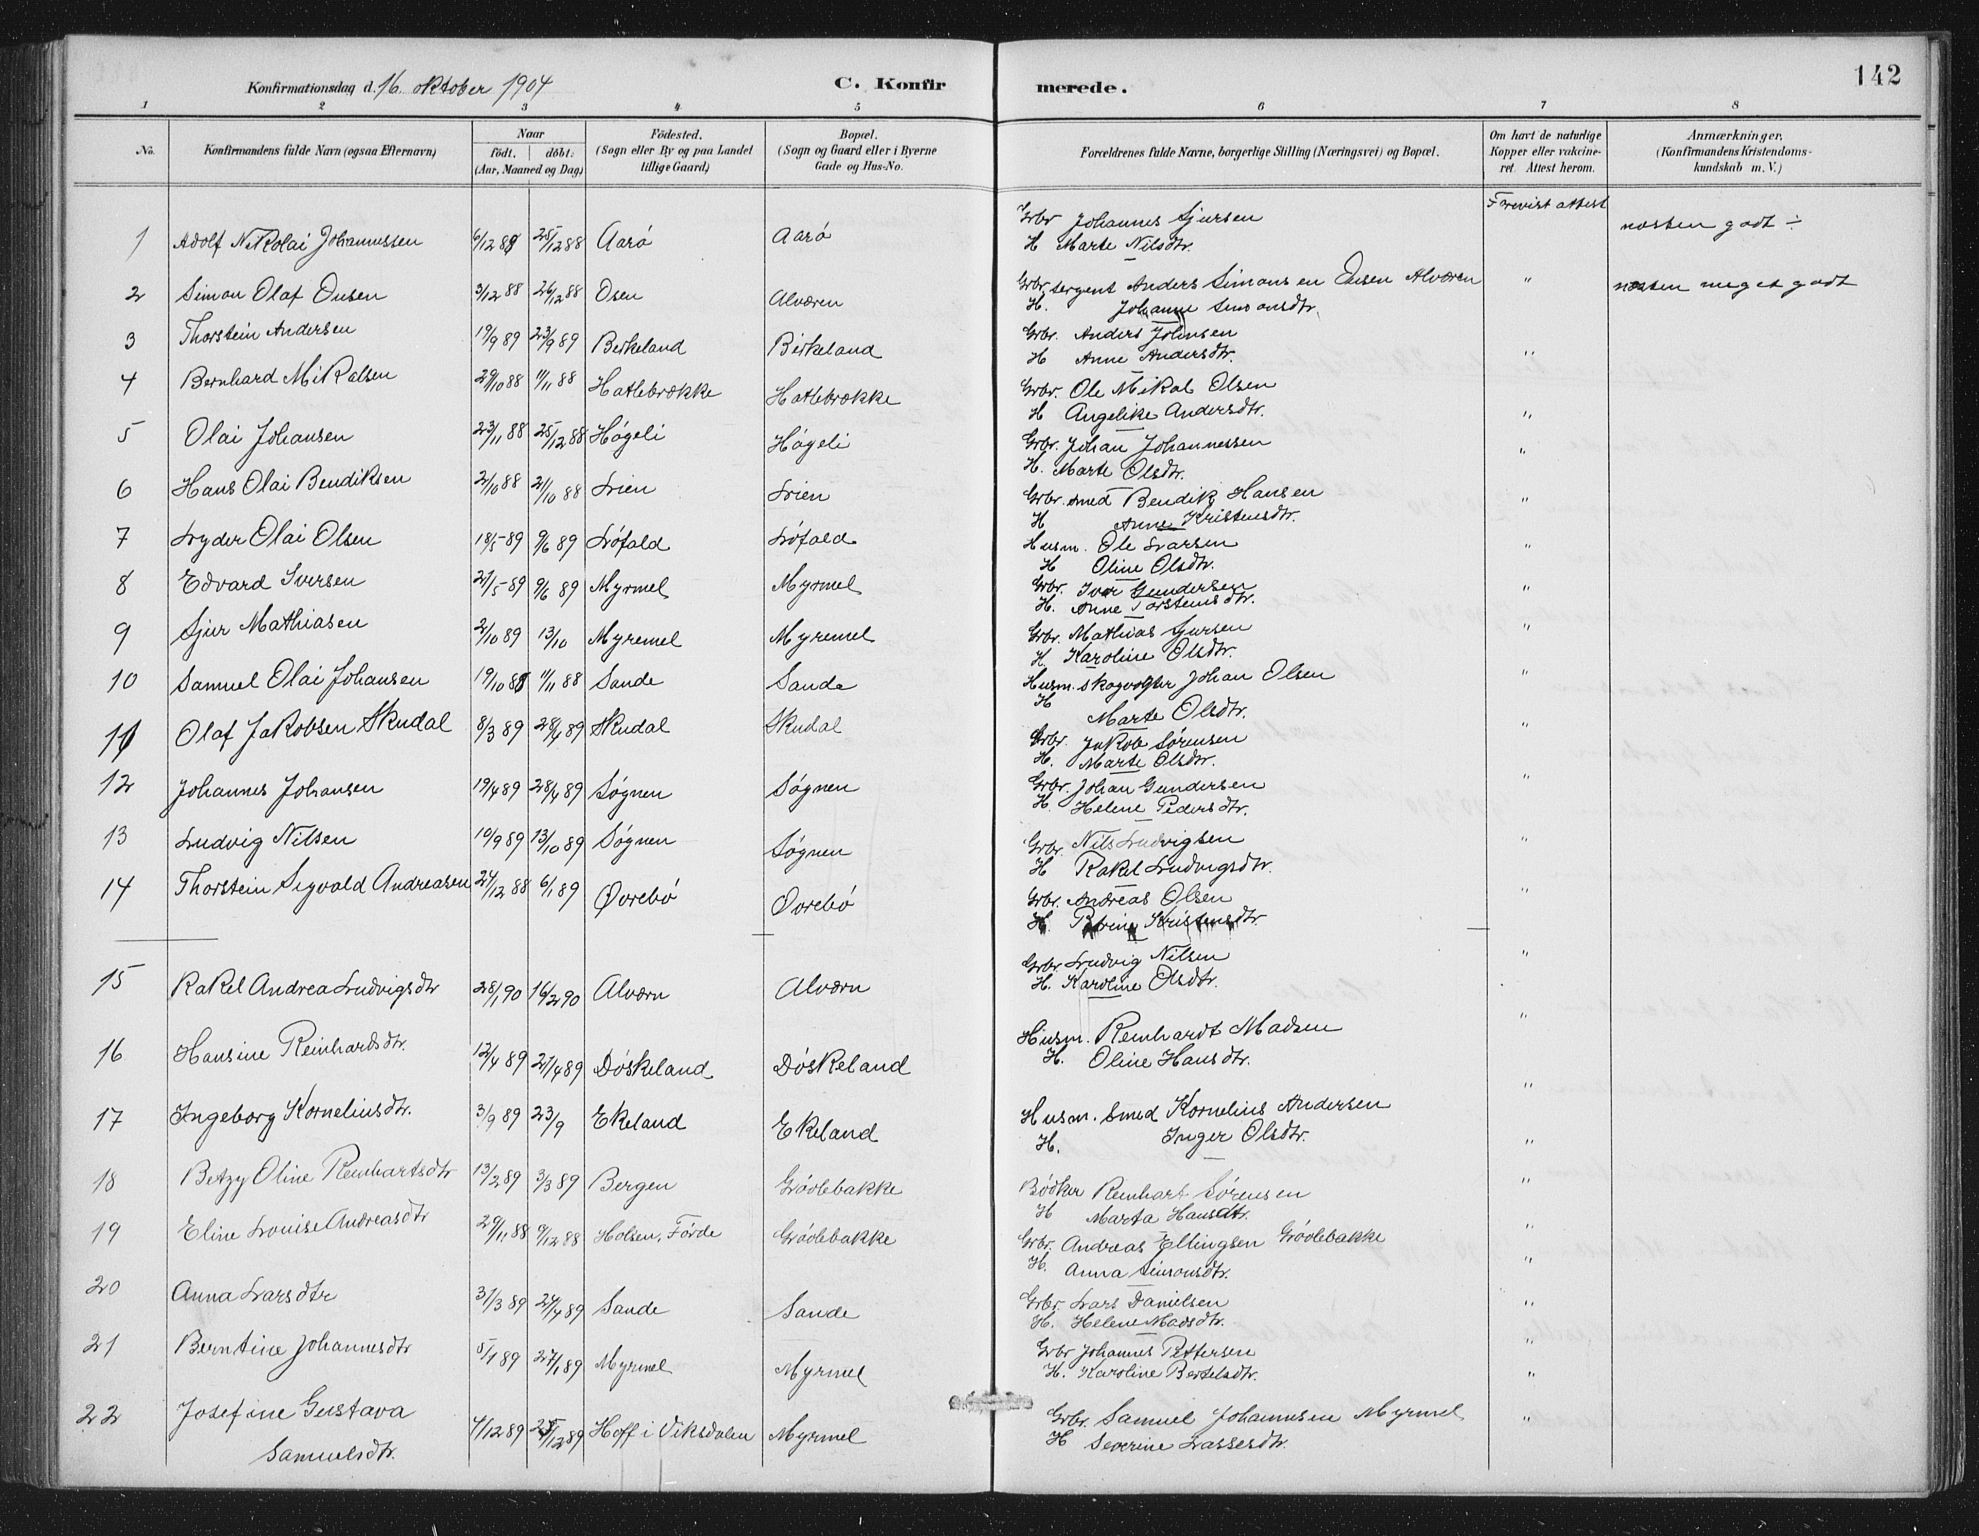 Konfirmationsdag d. 16. oktober 1904 C. Konfirmerede. 142
1 2 3 4 5 6 7 8
No. Konfirmandens fulde Navn (ogsaa Efternavn) Naar födt. döbt: (Aar, Maaned og Dag) Födested. (Sogn eller By og paa Landet tillige Gaard) Bopæl. (Sogn og Gaard eller i Byerne Gade og Hus-No. Forældrenes fulde Navne, borgerlige Stilling (Næringsvei) og Bopæl. Om havt de naturlige Kopper eller vakcineret. Attest herom. Anmærkninger. (Konfirmandens Kristendomskundskab m. V.)
1 Adolf Nikolai Johannessen 6/12 88 25/12 88 Aarö Aarö Grbr Johannes Sjursen Forevist attest næsten godt ÷
H Marte Nilsdtr.
2 Simon Olaf Ousen 3/12 88 26/12 88 Osen Alværen Grbr. sergent Anders Simonsen Ousen Alværen " næsten meget godt
H. Johanne Simonsdtr.
3 Thorstein Andersen 19/9 89 23/9 89 Birkeland Birkeland Grbr. Anders Johnsen
H Anne Andersdtr. "
4 Bernhard Mikalsen 29/10 88 11/11 88 Hatlebrække Hatlebrække Grbr. Ole Mikal Olsen
H Angelike Andersdtr. "
5 Olai Johansen 23/11 88 25/12 88 Högeli Högeli Grbr. Johan Johannessen "
H. Marte Olsdtr.
6 Hans Olai Bendiksen 2/10 88 21/10 88 Lien Lien Grbr. smed Bendik Hansen "
H Anne Kristensdtr.
7 Lyder Olai Olsen 18/5 89 9/6 89 Löfald Löfald Husm. Ole Larsen "
H Oline Olsdtr.
8 Edvard Iversen 21/5 89 9/6 89 Myrmel Myrmel Grbr. Iver Gundersen "
H. Anne Torstensdtr.
9 Sjur Mathiasen 2/10 89 13/10 Myremel Myremel Grbr. Mathias Sjursen "
H. Karoline Olsdtr.
10 Samuel Olai Johansen 19/10 88 11/11 88 Sande Sande Husm. skogvogter Johan Olsen "
H Marte Olsdtr.
11 Olaf Jakobsen Skudal 8/3 89 28/4 89 Skudal Skudal Grbr. Jakob Sörensen "
H. Marte Olsdtr.
12 Johannes Johansen 19/4 89 28/4 89 Sögnen Sögnen Grbr. Johan Gundersen "
H. Helene Pedersdtr.
13 Ludvig Nilsen 19/9 89 13/10 89 Sögnen Sögnen Grbr. Nils Ludvigsen "
H Rakel Ludvigsdtr.
14 Thorstein Sigvald Andreasen 24/12 88 6/1 89 Øvrebö Øvrebö Grbr. Andreas Olsen "
H. Petrine Kristensdtr
15 Rakel Andrea Ludvigsdtr 28/1 90 16/2 90 Alværn Alværn Grbr. Ludvig Nilsen "
H. Karoline Olsdtr.
16 Hansine Reinhardsdtr. 12/4 89 21/4 89 Döskeland Döskeland Husm. Reinhardt Madsen "
H. Oline Hansdtr.
17 Ingeborg Kornelinsdtr. 3/9 89 23/9 Ekeland Ekeland Husm. Smed Kornelius Andersen "
H. Inger Olsdtr. "
18 Betzy Oline Reinhartsdtr 13/2 89 3/3 89 Bergen Grödebakke Bödker Reinhart Sörensen "
H Marta Hansdtr.
19 Eline Louise Andreasdtr 29/11 88 9/12 88 Holsen, Förde Grödebakke Grbr. Andreas Ellingsen Grödebakke "
H. Anna Simonsdtr. "
20 Anna Larsdtr 31/3 89 24/4 89 Sande Sande Grbr. Lars Danielsen "
H. Helene Madsdtr.
21 Berntine Johannesdtr 5/1 89 27/1 89 Myrmel Myrmel Grbr Johannes Pettersen "
H. Karoline Bertelsdtr. "
22 Josefine Gustava 4/12 89 25/12 89 Hoff i Viksdalen Myrmel Grbr. Samuel Johannesen Myrmel "
Samuelsdtr. H Severine Lassesdtr.